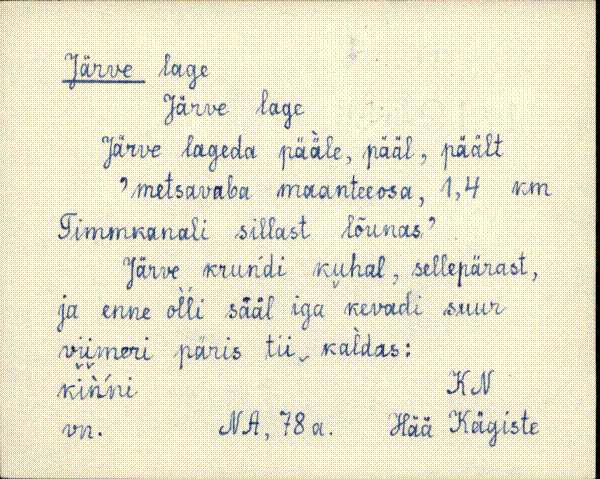 Järve lage
Järve lage
Järve lageda pääle, pääl, päält
'metsavaba maanteeosa, 1,4 km
Timmkanali sillast lõunas'
Järve krundi kuhal, sellepärast,
ja enne olli sääl iga kevadi suur
viimeri päris tii kaldas:
kinni KN
vn. NA, 78 a. Hää Kägiste